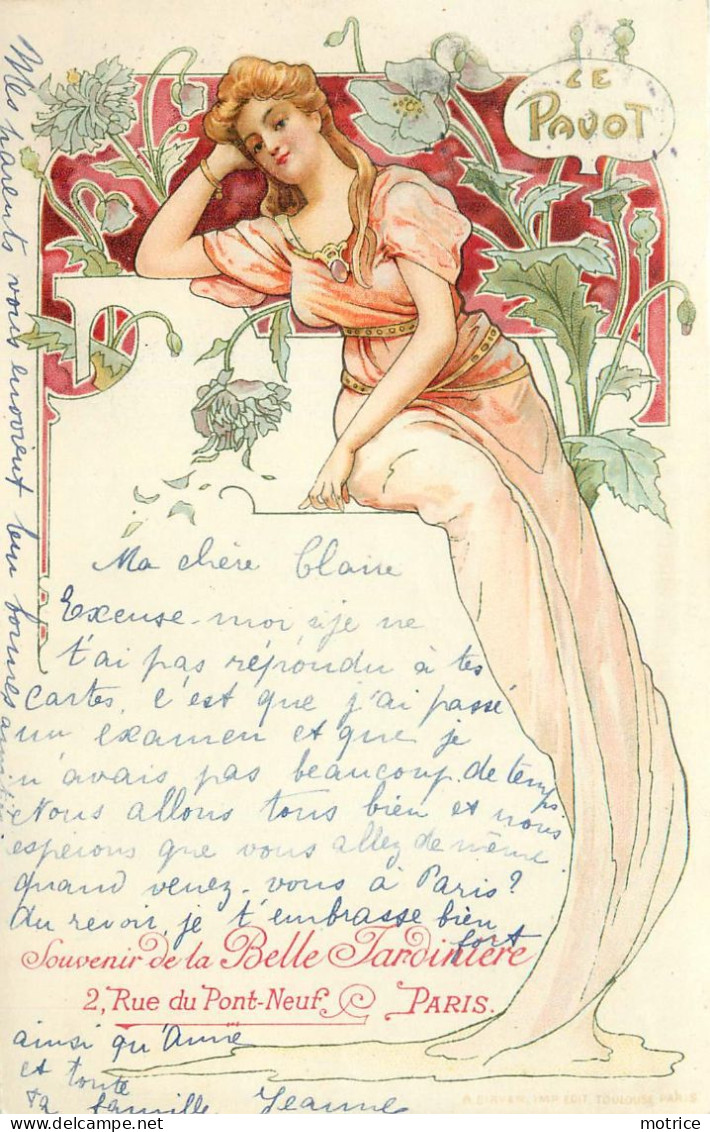 LE
PAVOT
Ma chère Claire
Excuse-moi si je ne
t'ai pas répondu à tes
cartes, c'est que j'ai passé
un examen et que je
n'avais pas beaucoup de temps
Nous allons tous bien et nous
espérons que vous allez de même
quand venez-vous à Paris?
Au revoir, je t'embrasse bien
fort
Souvenir de la Belle Jardinière
2, Rue du Pont-Neuf PARIS.
ainsi qu'Anne
et toute
ta famille Jeanne
Mes parents vous envoient leurs bonnes amitiés
A. SIRVEN, IMP. EDIT. TOULOUSE-PARIS
motrice
Delcampe.net